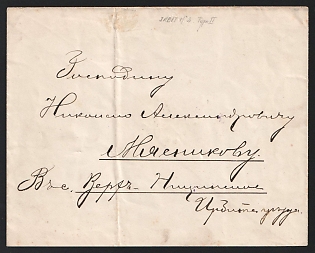 Господину
Николаю Александровичу
Мясникову.
Въ с. Верхъ-Ницинское
Ирбитск. уезда.